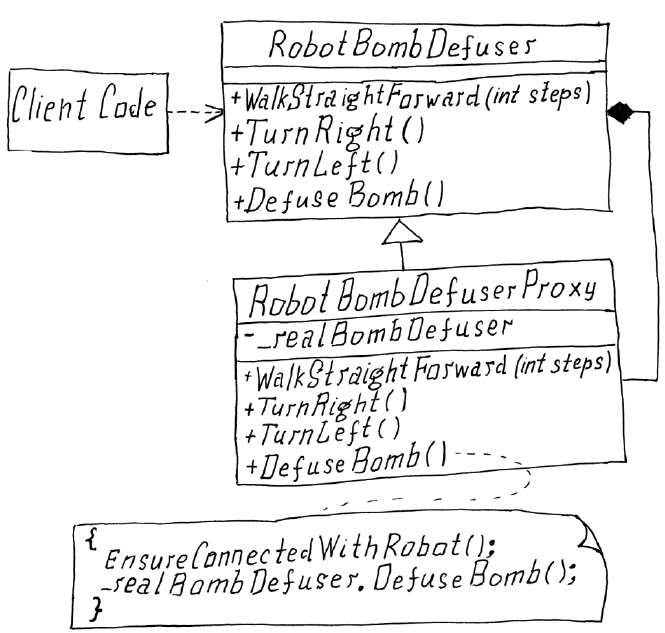 RobotBombDefuser
Client Code
+WalkStraightForward(int steps)
+TurnRight()
+TurnLeft()
+DefuseBomb()
RobotBombDefuserProxy
-_realBombDefuser
+WalkStraightForward(int steps)
+TurnRight()
+TurnLeft()
+DefuseBomb()
{
EnsureConnectedWithRobot();
_realBombDefuser.DefuseBomb();
}